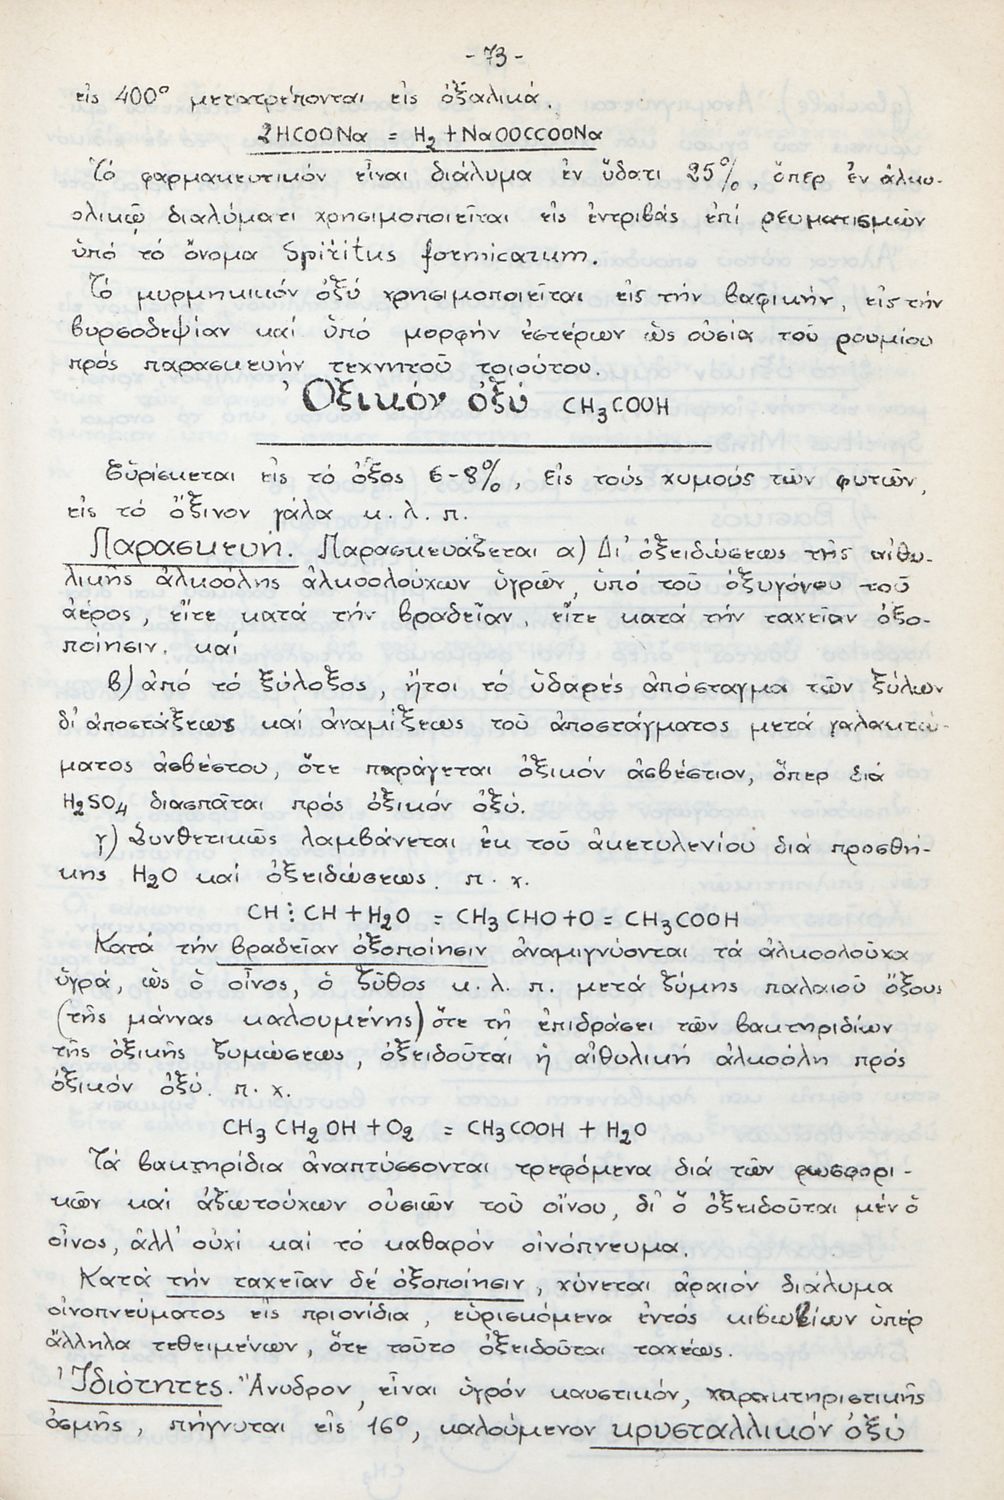 - 73 -
εἰς 400° μετατρέπονται εἰς ὀξαλικά.
2HCOONa = H2 + NaOOCCOONa
Τό φαρμακευτικόν εἶναι διάλυμα ἐν ὕδατι 25%, ὅπερ ἐν ἀλκο-
ολικῷ διαλύματι χρησιμοποιεῖται εἰς ἐντριβάς ἐπί ρευματισμῶν
ὑπό τό ὄνομα Spiritus formicarum.
Τό μυρμηκικόν ὀξύ χρησιμοποιεῖται εἰς τήν βαφικήν, εἰς τήν
βυρσοδεψίαν καί ὑπό μορφήν ἐστέρων ὡς οὐσία τοῦ ρουμίου
πρός παρασκευήν τεχνητοῦ τοιούτου.
Ὀξικον ὀξύ CH3COOH
Εὑρίσκεται εἰς τό ὄξος 6-8%, εἰς τούς χυμούς τῶν φυτῶν,
εἰς τό ὄξινον γάλα κ.λ.π.
Παρασκευή. Παρασκευάζεται α) Δι' ὀξειδώσεως τῆς αἰθυ-
λικῆς ἀλκοόλης ἀλκοολούχων ὑγρῶν, ὑπό τοῦ ὀξυγόνου τοῦ
ἀέρος, εἴτε κατά τήν βραδεῖαν, εἴτε κατά τήν ταχεῖαν ὀξο-
ποίησιν. καί
β) ἀπό τό ξύλοξος, ἤτοι τό ὑδαρές ἀπόσταγμα τῶν ξύλων
δι' ἀποστάξεως καί ἀναμίξεως τοῦ ἀποστάγματος μετά γαλακτώ-
ματος ἀσβέστου, ὅτε παράγεται ὀξικόν ἀσβέστιον, ὅπερ διά
H2SO4 διασπᾶται πρός ὀξικόν ὀξύ.
γ) Συνθετικῶς λαμβάνεται ἐκ τοῦ ἀκετυλενίου διά προσθή-
κης H2O καί ὀξειδώσεως. π.χ.
CH⋮CH + H2O = CH3CHO + O = CH3COOH
Κατά τήν βραδεῖαν ὀξοποίησιν ἀναμιγνύονται τά ἀλκοολοῦχα
ὑγρά, ὡς ὁ οἶνος, ὁ ζῦθος κ.λ.π. μετά ζύμης παλαιοῦ ὄξους
(τῆς μάννας καλουμένης) ὅτε τῇ ἐπιδράσει τῶν βακτηριδίων
τῆς ὀξικῆς ζυμώσεως, ὀξειδοῦται ἡ αἰθυλική ἀλκοόλη πρός
ὀξικόν ὀξύ. π.χ.
CH3CH2OH + O2 = CH3COOH + H2O
Τά βακτηρίδια ἀναπτύσσονται τρεφόμενα διά τῶν φωσφορι-
κῶν καί ἀζωτούχων οὐσιῶν τοῦ οἴνου, δι' ὅ ὀξειδοῦται μέν ὁ
οἶνος, ἀλλ' οὐχί καί τό καθαρόν οἰνόπνευμα.
Κατά τήν ταχεῖαν δέ ὀξοποίησιν, χύνεται ἀραιόν διάλυμα
οἰνοπνεύματος εἰς πριονίδια, εὑρισκόμενα ἐντός κιβωτίων ὑπέρ
ἄλληλα τεθειμένων, ὅτε τοῦτο ὀξειδοῦται ταχέως.
Ἰδιότητες. Ἄνυδρον, εἶναι ὑγρόν καυστικόν, χαρακτηριστικῆς
ὀσμῆς, πήγνυται εἰς 16°, καλούμενον κρυσταλλικόν ὀξύ